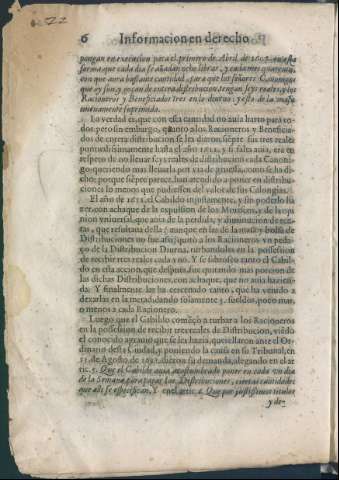 6 Informacion en derecho
pongan en execucion para el primero de Abril de 1603. en esta
forma que cada dia se añadan ocho libras, y cada mes quarenta,
con que aura bastante cantidad, para que los señores Canonigos
que oy son, y gozan de entera distribucion, tengan seys reales, y los
Racioneros y Beneficiados tres en lo dentro: y esta de la masa
vnicamente suprimada.
Lo verdad es, que con esta cantidad no auia harto para to-
dos pero sin embargo, quanto a los Racioneros y Beneficia-
dos de entera distribucion se les dieron siẽpre sus tres reales
puntualissimamente hasta el año 1612. y si falta auia, era en
respeto de no lleuar seys reales de distribucion cada Canoni-
go queriendo mas lleuarla
porque siẽpre parece, han atendido a poner en distribu-
ciones lo menos que pudiessen del valor de sus Calongias.
El año de 1612. el Cabildo injustamente, y sin poderlo ha-
zer, con achaque de la expulsion de los Moriscos, y de la opi-
nion vniuersal, que auia de la perdida, y diminucion de ren-
tas, que resultaua della (aunque en las de la masa y bolsa de
Distribuciones no fue assi) quitò a los Racioneros vn peda-
ço de la Distribucion Diurna, turbandoles en la possession
de recibir tres reales cada vno. Y se saboreò tanto el Cabil-
do en esta accion, que despues, fue quitando mas porcion de
las dichas Distribuciones, con achaque, que no auia hazien-
da. Y finalmente las ha cercenado tanto, que ha venido a
dexarlas en la metad, dando solamente 3. sueldos, poco mas,
o menos a cada Racionero.
Luego que el Cabildo començò a turbar a los Racioneros
en la possession de recibir tres reales de Distribucion, viẽdo
el conocido agrauio que se les hazia, querellaron ante el Or-
dinario desta Ciudad, y poniendo la causa en su Tribunal, en
31. de Agosto, de 1613. dieron su demanda, alegando en el ar-
tic. 5. Que el Cabildo auia acostumbrado poner en cada vn dia
de la Semana para pagar las Distribuciones, ciertas cantidades
que alli se especifican. Y en el artic. 6. Que por justissimos titulos
y de-